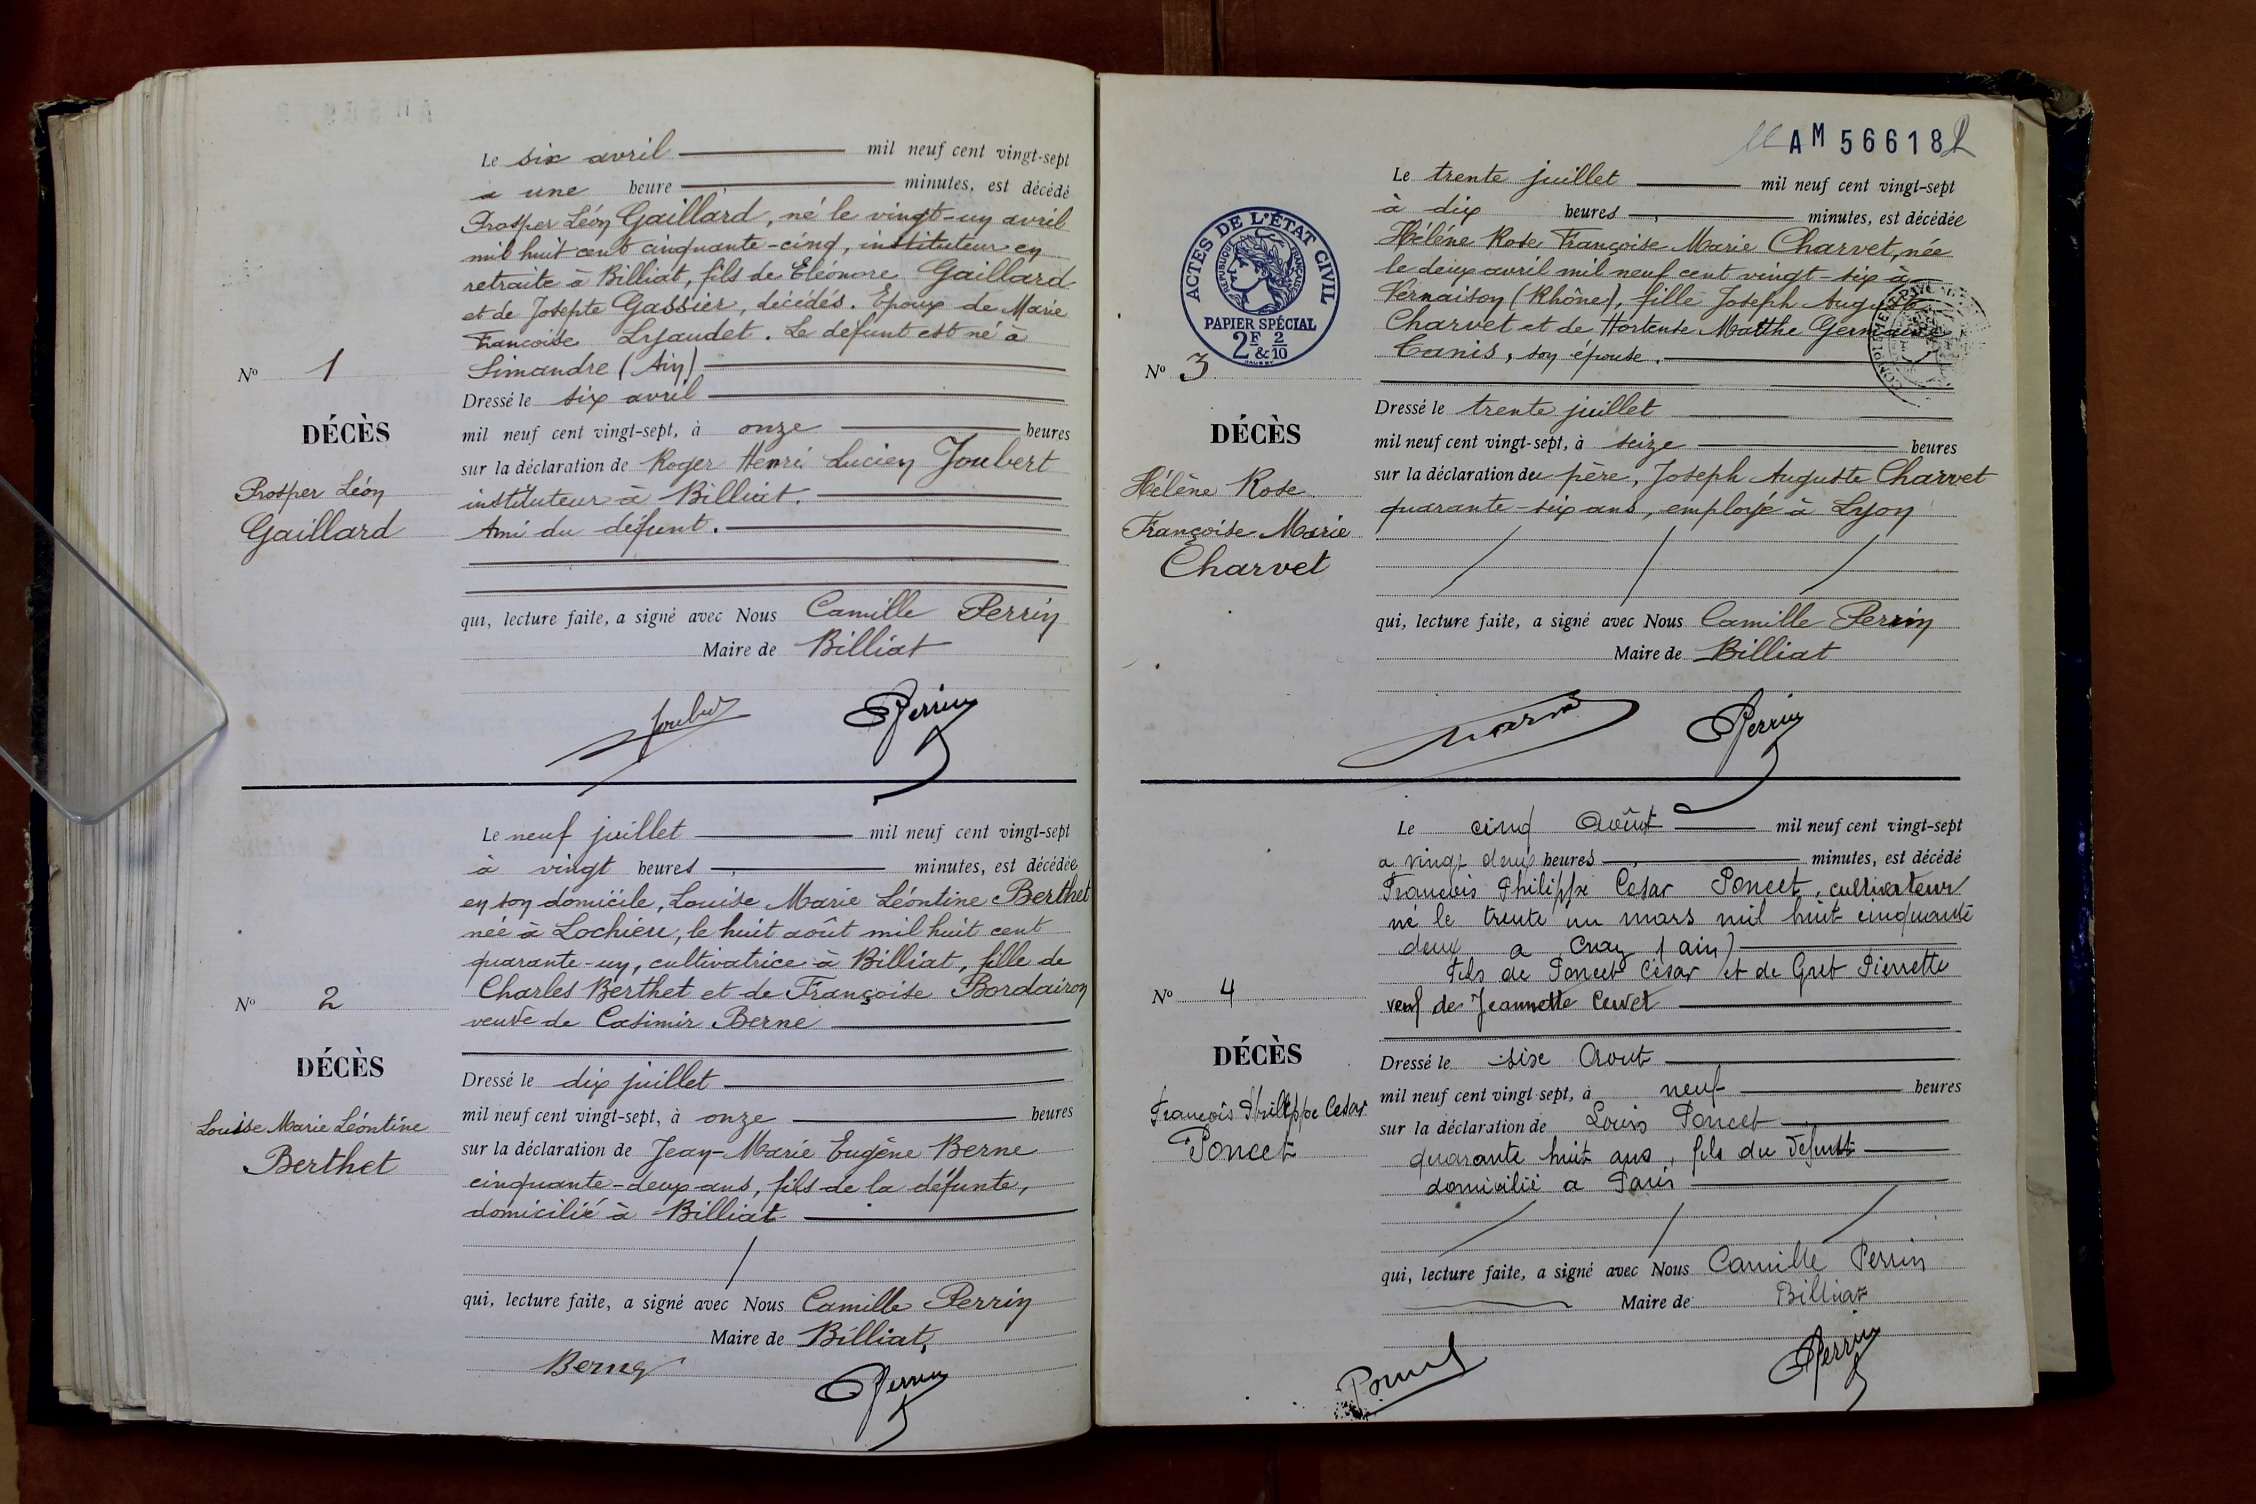 Le six avril mil neuf cent vingt-sept
a une heure minutes, est décédé
Prosper Léon Gaillard, né le vingt-un avril
mil huit cent cinquante-cinq, instituteur en
retraite à Billiat, fils de Eléonore Gaillard
et de Josepte Gassier, décédés. Epoux de Marie
Francoise Lyaudet. Le défunt est né à
Simandre (Ain)
Nº 1
DÉCÈS
Prosper Léon
Gaillard
Dressé le six avril
mil neuf cent vingt-sept, à onze heures
sur la déclaration de Roger Henri Lucien Joubert
instituteur à Billiat.
Ami du défunt.
qui, lecture faite, a signé avec Nous Camille Perrin
Maire de Billiat
Joubert
Perrin
Le neuf juillet mil neuf cent vingt-sept
à vingt heures minutes, est décédée
en son domicile, Louise Marie Léontine Berthet
née à Lochieu, le huit août mil huit cent
quarante-un, cultivatrice à Billiat, fille de
Charles Berthet et de Françoise Bordairon
veuve de Casimir Berne
Nº 2
DÉCÈS
Louise Marie Léontine
Berthet
Dressé le dix juillet
mil neuf cent vingt-sept, à onze heures
sur la déclaration de Jean-Marie Eugène Berne
cinquante-deux ans, fils de la défunte,
domicilié à Billiat
qui, lecture faite, a signé avec Nous Camille Perrin
Maire de Billiat,
Berne
Perrin
AM 56618
ACTES DE L'ÉTAT CIVIL
RÉPUBLIQUE FRANÇAISE
PAPIER SPÉCIAL
2F & 2/10
Le trente juillet mil neuf cent vingt-sept
à dix heures minutes, est décédée
Hélène Rose Françoise Marie Charvet, née
le deux avril mil neuf cent vingt-six à
Vernaison (Rhône), fille Joseph Auguste
Charvet et de Hortense Marthe Germaine
Canis, son épouse.
Nº 3
DÉCÈS
Hélène Rose
Françoise Marie
Charvet
Dressé le trente juillet
mil neuf cent vingt-sept, à seize heures
sur la déclaration du père, Joseph Auguste Charvet
quarante-six ans, employé à Lyon
qui, lecture faite, a signé avec Nous Camille Perrin
Maire de Billiat
Perrin
Le cinq Août mil neuf cent vingt-sept
a vingt deux heures minutes, est décédé
François Philippe Cesar Poncet, cultivateur
né le trente un mars mil huit cinquante
deux a Craz (ain)
Fils de Poncet César et de Gret Pierrette
veuf de Jeannette Cuvet
Nº 4
DÉCÈS
François Philippe Cesar
Poncet
Dressé le six Aout
mil neuf cent vingt sept, à neuf heures
sur la déclaration de Louis Poncet
quarante huit ans, fils du défunt
domicilié a Paris
qui, lecture faite, a signé avec Nous Camille Perrin
Maire de Billiat
Poncet
Perrin